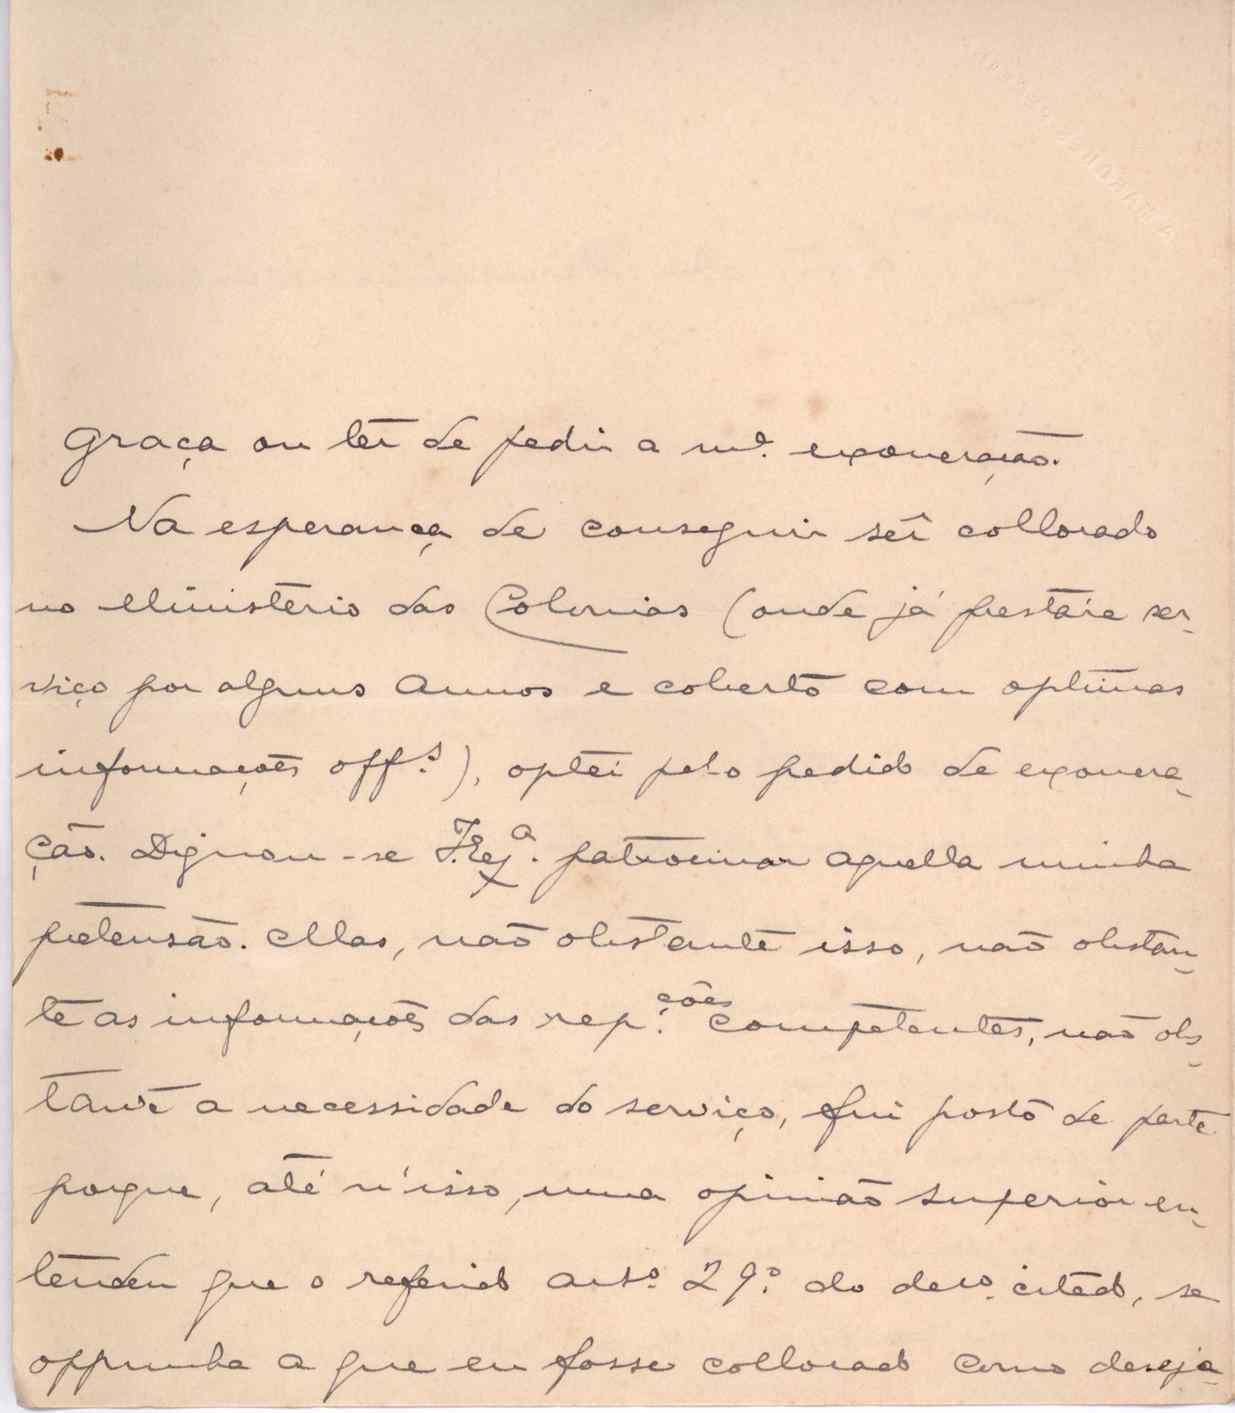 graça ou têr de pedir a mª. exoneração.
Na esperança de conseguir sêr collocado
no Ministério das Colonias (onde já prestára ser-
viço por alguns annos e coberto com optimas
informações offs.), optei pelo pedido de exonera-
ção. Dignou-se V. Exª. patrocinar aquella minha
pretensão. Mas, não obstante isso, não obstan-
te as informações das rep.ções competentes, não obs-
tante a necessidade do serviço, fui posto de parte
porque, até n'isso, uma opinião superior en-
tendeu que o referido artº. 29º. do decº. citado, se
oppunha a que eu fosse collocado como deseja-